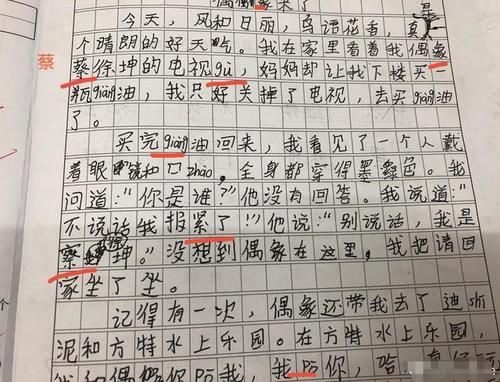 偶象来了
今天，风和日丽，鸟语花香，真是
个晴朗的好天吃。我在家里看着我偶象
蔡
蔡徐坤的电视gǜ，妈妈却让我下楼买一
瓶giàng油，我只好关掉了电视，去买giàng油
了。
买完giàng油回来，我看见了一个人戴
着眼镜和口zhào，全身都穿得墨绿色。我
问道：“你是谁？”他没有回答。我说道：“
不说话我报紧了！”他说：“别说话，我是
蔡徐坤。”没想到偶象在这里，我把请回
家坐了坐。
记得有一次，偶象还带我去了迪shi
泥和方特水上乐园。在方特水上乐园，
我和偶象你 我，我 你，哈，